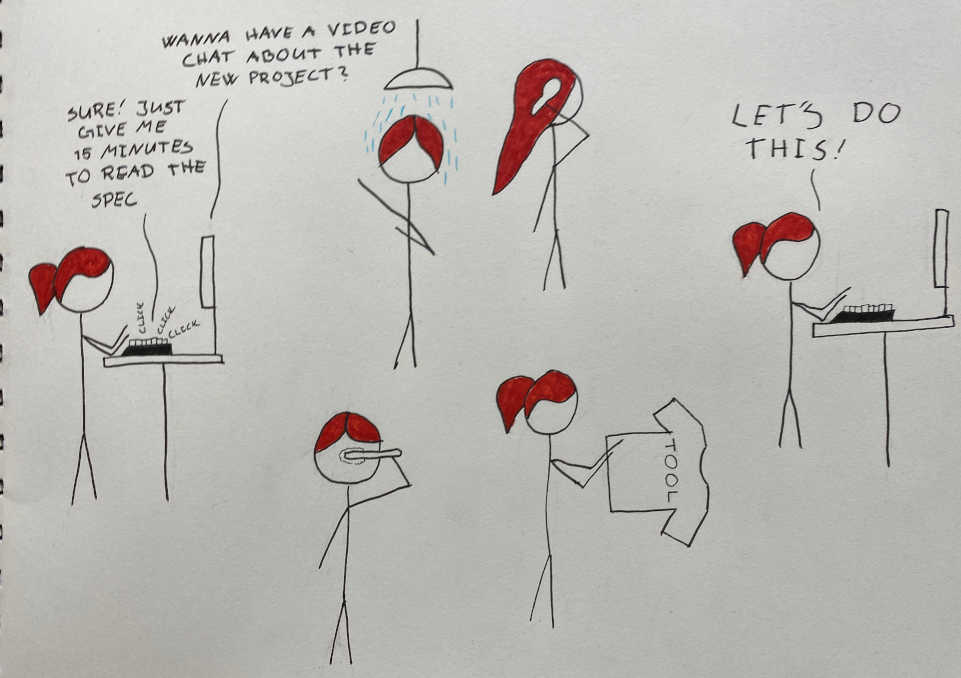 WANNA HAVE A VIDEO
CHAT ABOUT THE
NEW PROJECT?
SURE! JUST
GIVE ME
15 MINUTES
TO READ THE
SPEC
CLICK
CLICK
CLICK
TOOL
LET'S DO
THIS!